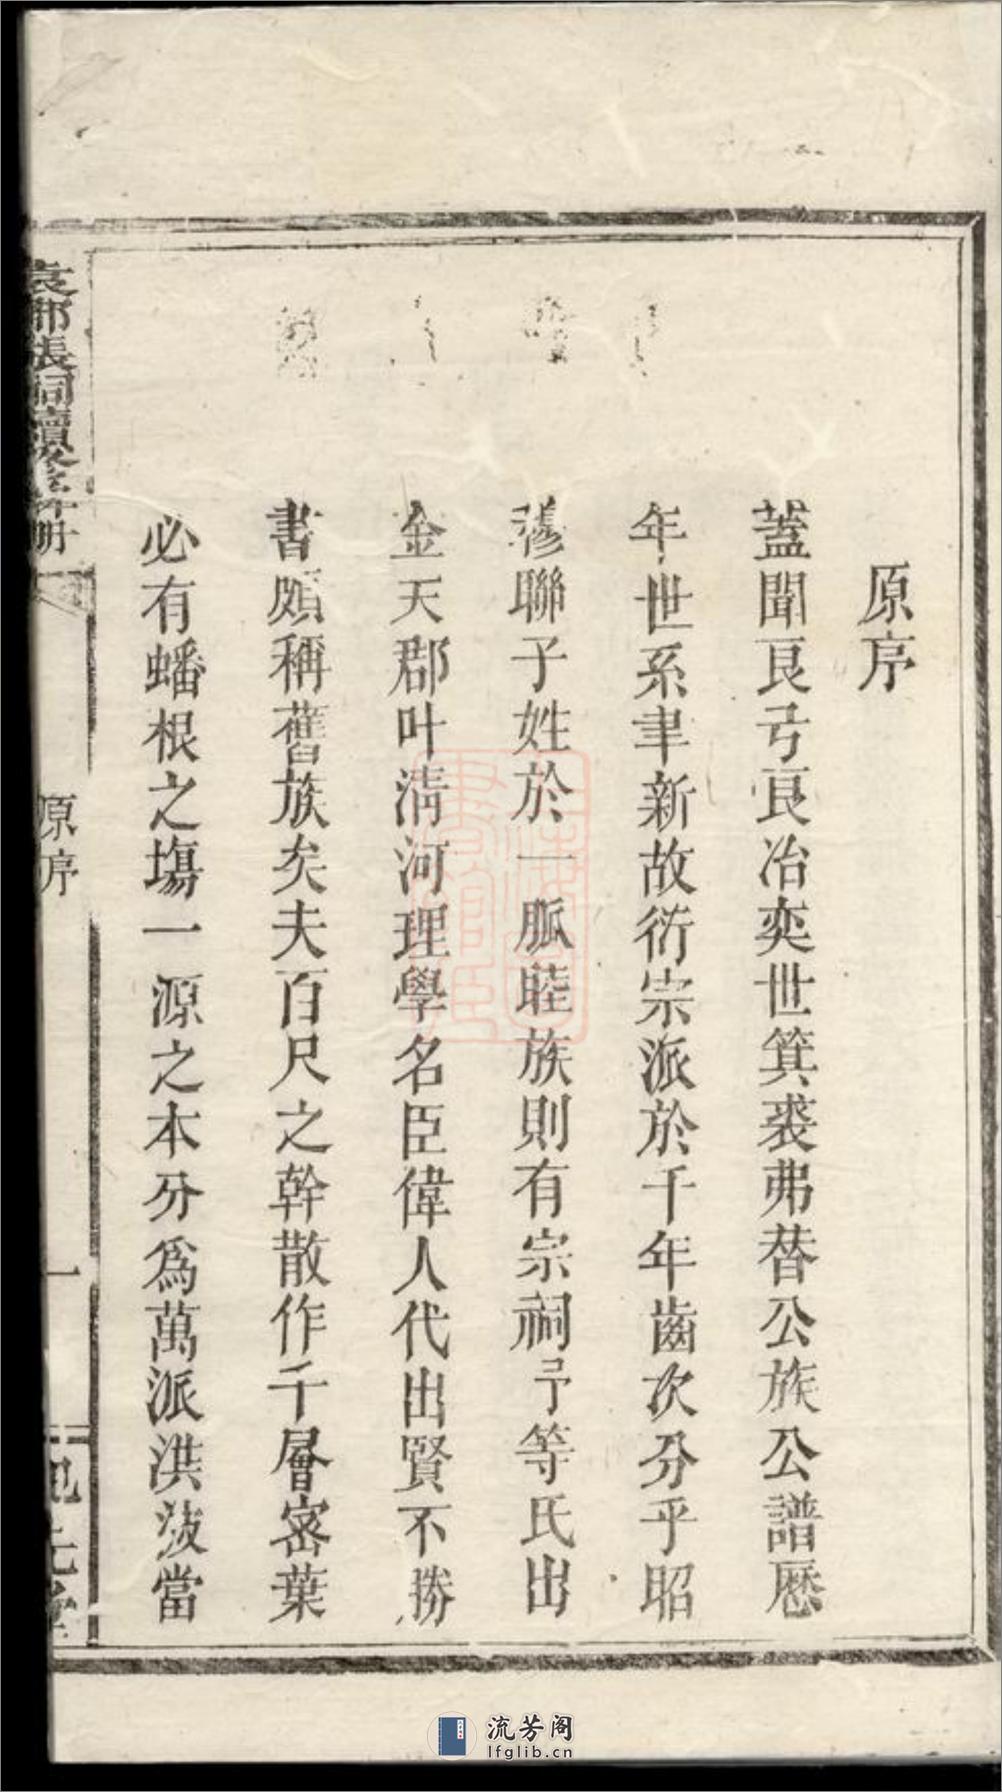 原序
蓋聞良弓良冶奕世箕裘弗替公族公譜歷
年世系聿新故衍宗派於千年齒次分乎昭
穆聯子姓於一脈睦族則有宗祠予等氏出
金天郡叶清河理學名臣偉人代出賢不勝
書頗稱舊族矣夫百尺之幹散作千層密葉
必有蟠根之塲一源之本分爲萬派洪波當
袁郡張祠續修
原序
一
流芳阁
lfglib.cn